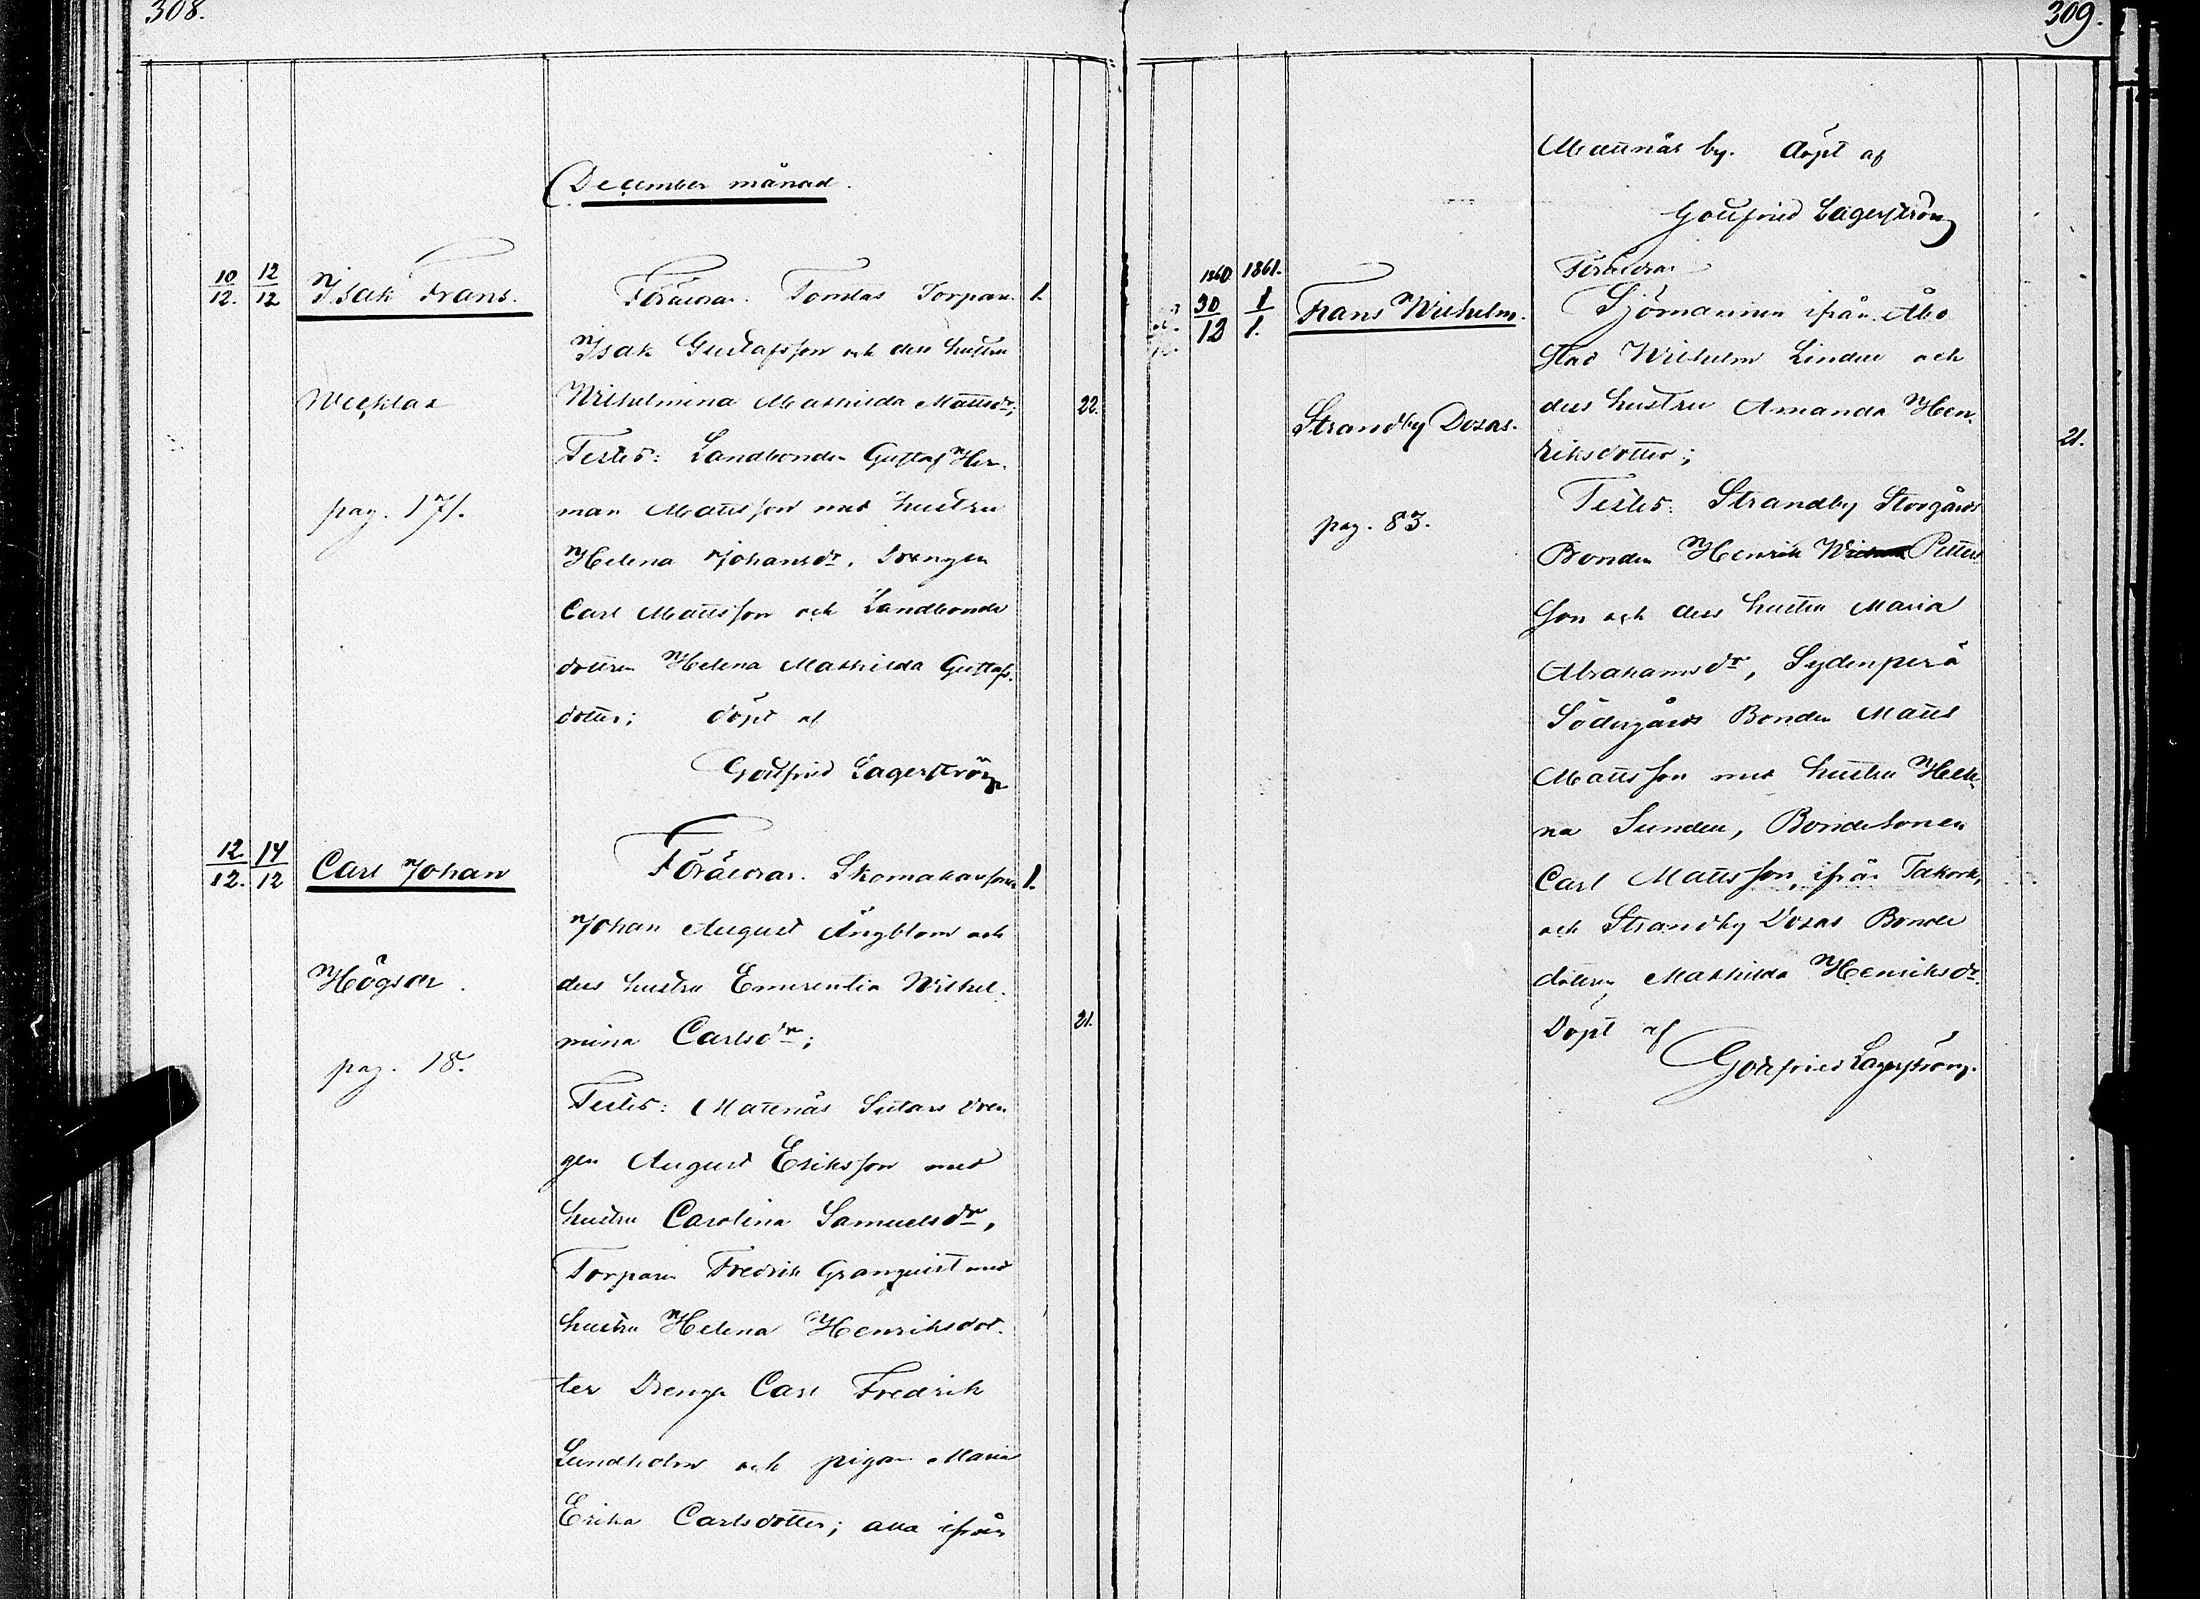 308.
December månad.
10/12. 12/12 Isak Frans. Föräldrar. Torpare 1.
Isak Gustafsson och dess hustru
Wecklax Wilhelmina Mathilda Mattsdr; 22.
Testes: Landbonden Gustaf Her-
pag. 171. man Mattsson med hustru
Helena Johansdr, Drengen
Carl Mattsson och Landbonde
dottren Helena Mathilda Gustafs-
dotter; döpt af
Gottfried Lagerström
12/12. 14/12 Carl Johan Föräldrar. Skomakar 1.
Johan August Ängblom och
Högsar. dess hustru Emerentia Wilhel-
mina Carlsdr; 21.
pag. 18.
Testes: Mattnäs drän
gen August Eriksson med
hustru Carolina Samuelsdr,
Torparen Fredrik Granquist med
hustru Helena Henriksdot-
ter Drengen Carl Fredrik
Lundholm och pigan Maria
Erika Carlsdotter; alla ifrån
309.
Mattnäs by. döpt af
Gottfried Lagerström
1860 1861. Föräldrar
30/12 1/1. Frans Wilhelm. Sjömannen ifrån Åbo
Stad Wilhelm Linden och
Strandby Dosas. dess hustru Amanda Hen-
riksdotter; 21.
pag. 83. Testes: Strandby Storgårds
Bonden Henrik Petters
son och dess hustru Maria
Abrahamsdr, Sydenperä
Södergårds Bonden Matts
Mattsson med hustru Hele
na Sunden, Bondesonen
Carl Mattsson, ifrån
och Strandby Dosas Bonde
dottren Mathilda Henriksdr.
Döpt af
Gottfried Lagerström.